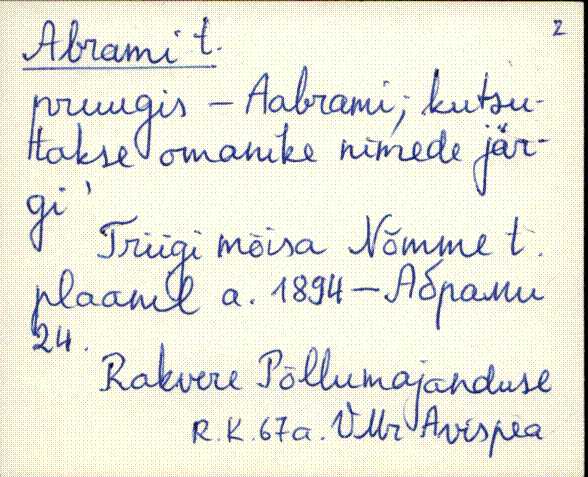 2
Abrami t.
pruugis – Aabrami, kutsu-
takse omanike nimede jär-
gi
Triigi mõisa Nõmme t.
plaanil a. 1894 – Абрами
24.
Rakvere Põllumajanduse
R.K. 67a. VMr Avispea